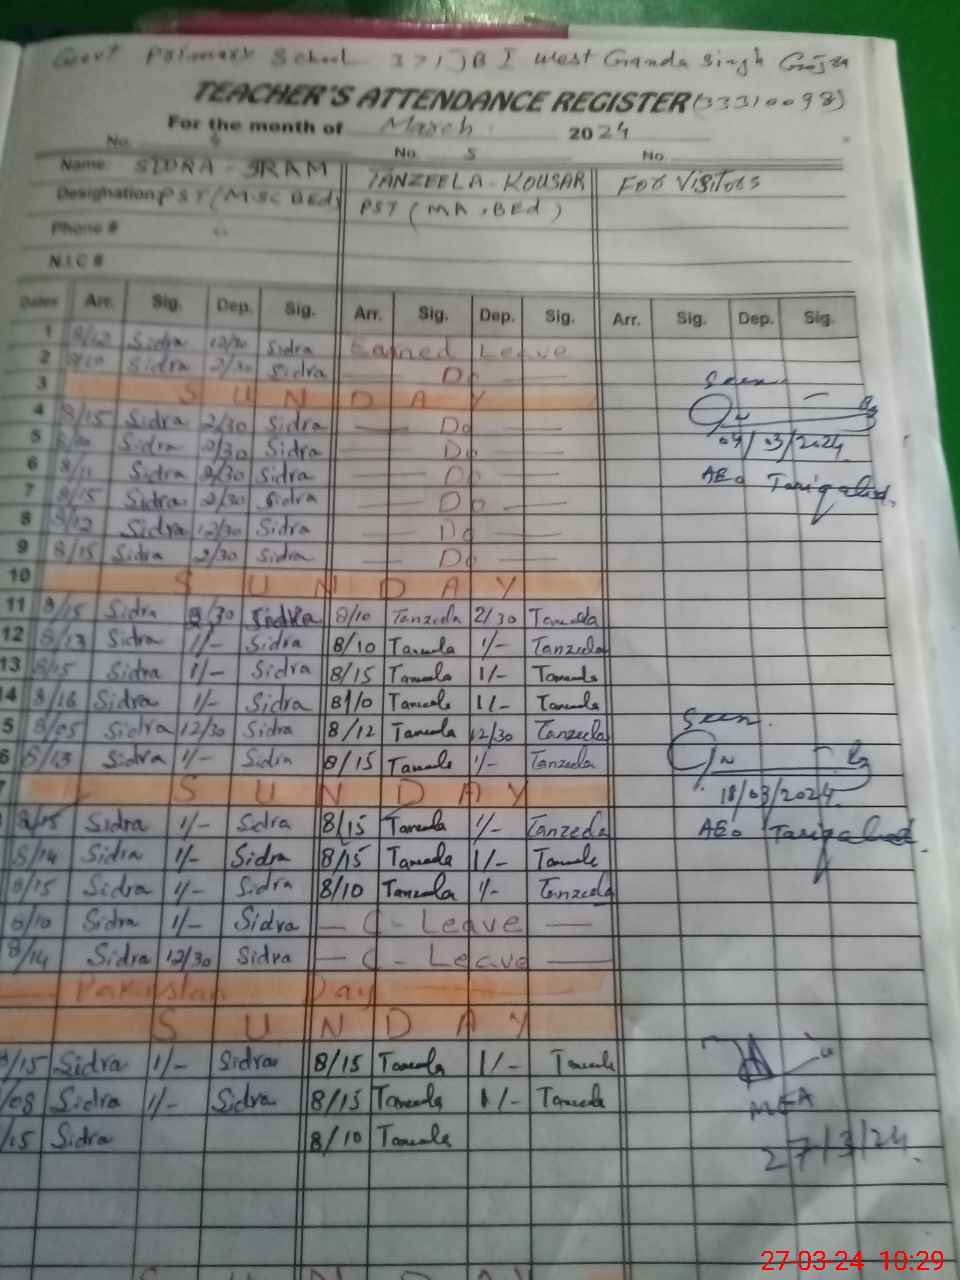 Govt Primary School 371 JB I West Ganda Singh Gojra
TEACHER'S ATTENDANCE REGISTER (33310098)
For the month of March 2024
No. 4 No. 5 No.
Name: SIDRA - IRAM TANZEELA - KOUSAR FOR VISITORS
Designation PST (M.SC BED) PST (MA, BEd)
Phone #
N.I.C #
Dates Arr. Sig. Dep. Sig. Arr. Sig. Dep. Sig. Arr. Sig. Dep. Sig.
1 8/12 Sidra 12/30 Sidra Earned Leave
2 8/10 Sidra 2/30 Sidra — Do —
3 SUNDAY Seen
4 8/15 Sidra 2/30 Sidra — Do —
5 8/10 Sidra 2/30 Sidra — Do — 04/03/2024
6 8/11 Sidra 2/30 Sidra — Do — AEo
7 8/15 Sidra 2/30 Sidra — Do —
8 8/12 Sidra 12/30 Sidra — Do —
9 8/15 Sidra 2/30 Sidra — Do —
10 SUNDAY
11 8/15 Sidra 2/30 Sidra 8/10 Tanzeela 2/30 Tanzeela
12 8/13 Sidra 1/- Sidra 8/10 Tanzeela 1/- Tanzeela
13 8/15 Sidra 1/- Sidra 8/15 Tanzeela 1/- Tanzeela
14 8/16 Sidra 1/- Sidra 8/10 Tanzeela 1/- Tanzeela
5 8/05 Sidra 12/30 Sidra 8/12 Tanzeela 12/30 Tanzeela Seen.
6 8/13 Sidra 1/- Sidra 8/15 Tanzeela 1/- Tanzeela
7 SUNDAY 18/03/2024
8/15 Sidra 1/- Sidra 8/15 Tanzeela 1/- Tanzeela AEo
8/14 Sidra 1/- Sidra 8/15 Tanzeela 1/- Tanzeela
8/15 Sidra 1/- Sidra 8/10 Tanzeela 1/- Tanzeela
8/10 Sidra 1/- Sidra — C - Leave —
8/14 Sidra 12/30 Sidra — C - Leave —
Pakistan Day
SUNDAY
/15 Sidra 1/- Sidra 8/15 Tanzeela 1/- Tanzeela
/08 Sidra 1/- Sidra 8/15 Tanzeela 1/- Tanzeela MEA
/15 Sidra 8/10 Tanzeela 27/3/24
SUNDAY
27-03-24 10:29